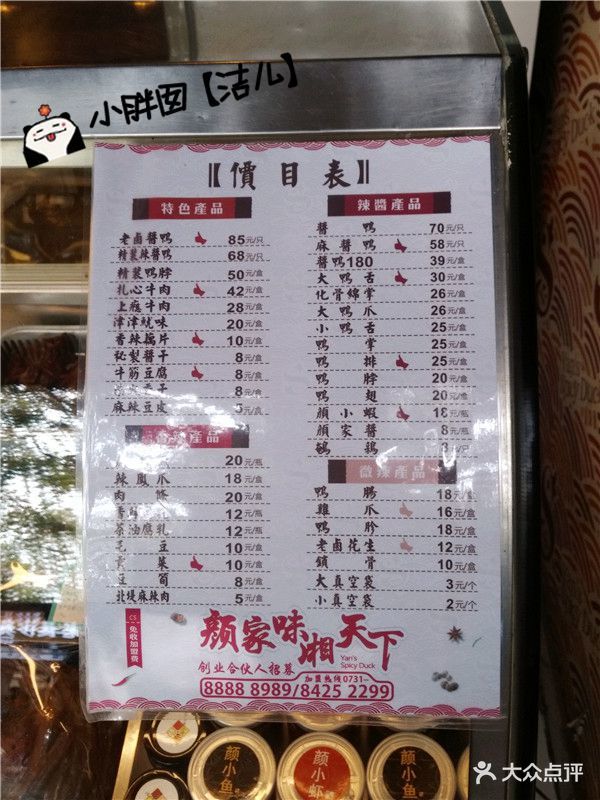 小胖囡【洁儿】
價目表
特色產品
老鹵醬鴨 85元/只
精裝辣醬鴨 68元/只
精裝鴨脖 50元/盒
扎心牛肉 42元/盒
上癮牛肉 28元/盒
津津魷味 20元/盒
香辣藕片 10元/盒
秘製醬干 8元/盒
牛筋豆腐 8元/盒
8元/盒
麻辣豆皮 5元/盒
產品
20元/瓶
辣鳳爪 18元/盒
肉條 20元/盒
12元/盒
茶油腐乳 12元/瓶
毛豆 10元/盒
菜 10元/盒
豆筍 8元/盒
北堤麻辣肉 5元/盒
辣醬產品
醬鴨 70元/只
麻醬鴨 58元/只
醬鴨180 39元/盒
大鴨舌 30元/盒
化骨綿掌 26元/盒
大鴨爪 26元/盒
小鴨舌 25元/盒
鴨掌 25元/盒
鴨排 25元/盒
鴨脖 20元/盒
鴨翅 20元/盒
顏小蝦 18元/瓶
顏家醬 8元/瓶
鵪鶉
微辣產品
鴨腸 18元/盒
雞爪 16元/盒
鴨胗 18元/盒
老鹵花生 12元/盒
鎖骨 10元/盒
大真空袋 3元/个
小真空袋 2元/个
CS 免收加盟费
颜家味湘天下
Yan's Spicy Duck
创业合伙人招募
加盟热线0731-
8888 8989/8425 2299
颜小鱼
颜小虾
颜小鱼
大众点评